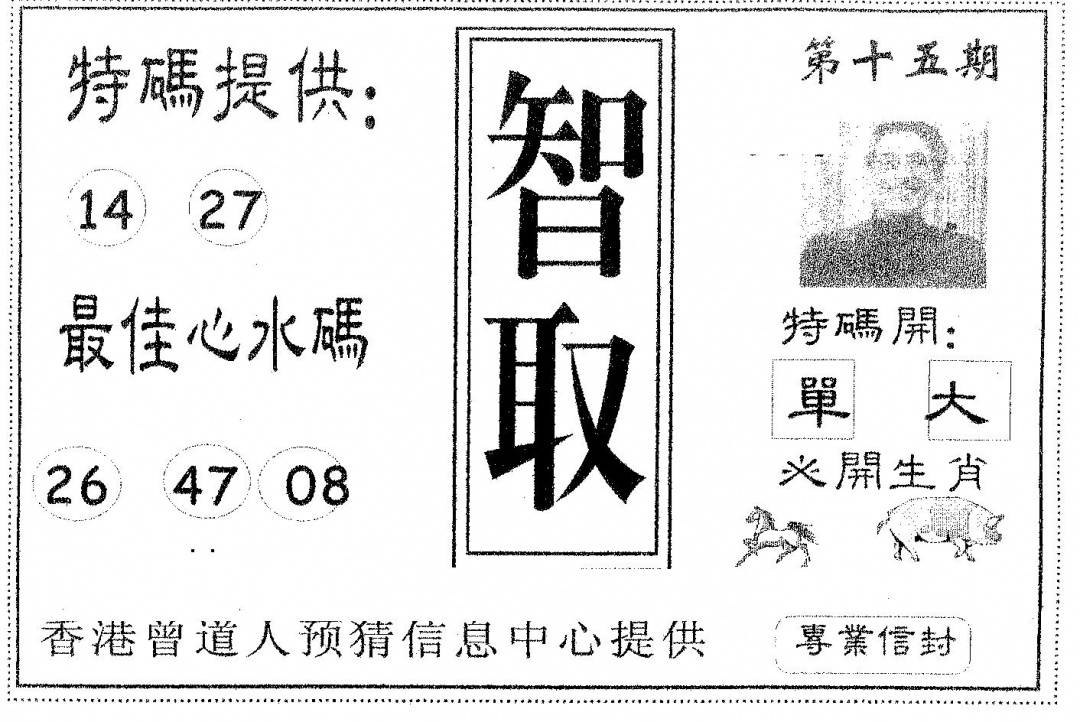 特碼提供：
14 27
最佳心水碼
26 47 08
智取
第十五期
特碼開：
單 大
必開生肖
香港曾道人预猜信息中心提供
專業信封